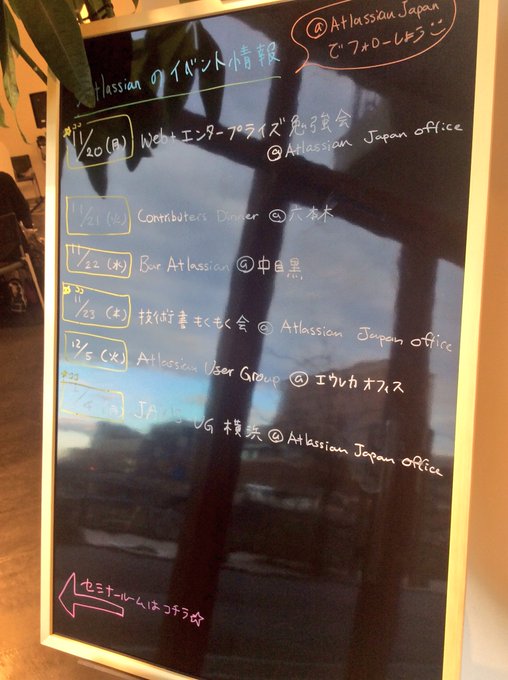 @AtlassianJapan
でフォローしよう
Atlassian のイベント情報
11/20 (月) Web+エンタープライズ勉強会
@Atlassian Japan office
11/21 (火) Contributers Dinner @六本木
11/22 (水) Bar Atlassian @中目黒
11/23 (木) 技術書もくもく会 @ Atlassian Japan office
12/5 (火) Atlassian User Group @ エウレカオフィス
UG 横浜 @ Atlassian Japan office
セミナールームはコチラ☆